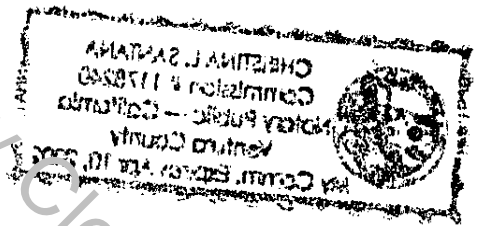 CHRISTINA L. SANTANA
Commission #
Notary Public — California
Ventura County
My Comm. Expires Apr 10,